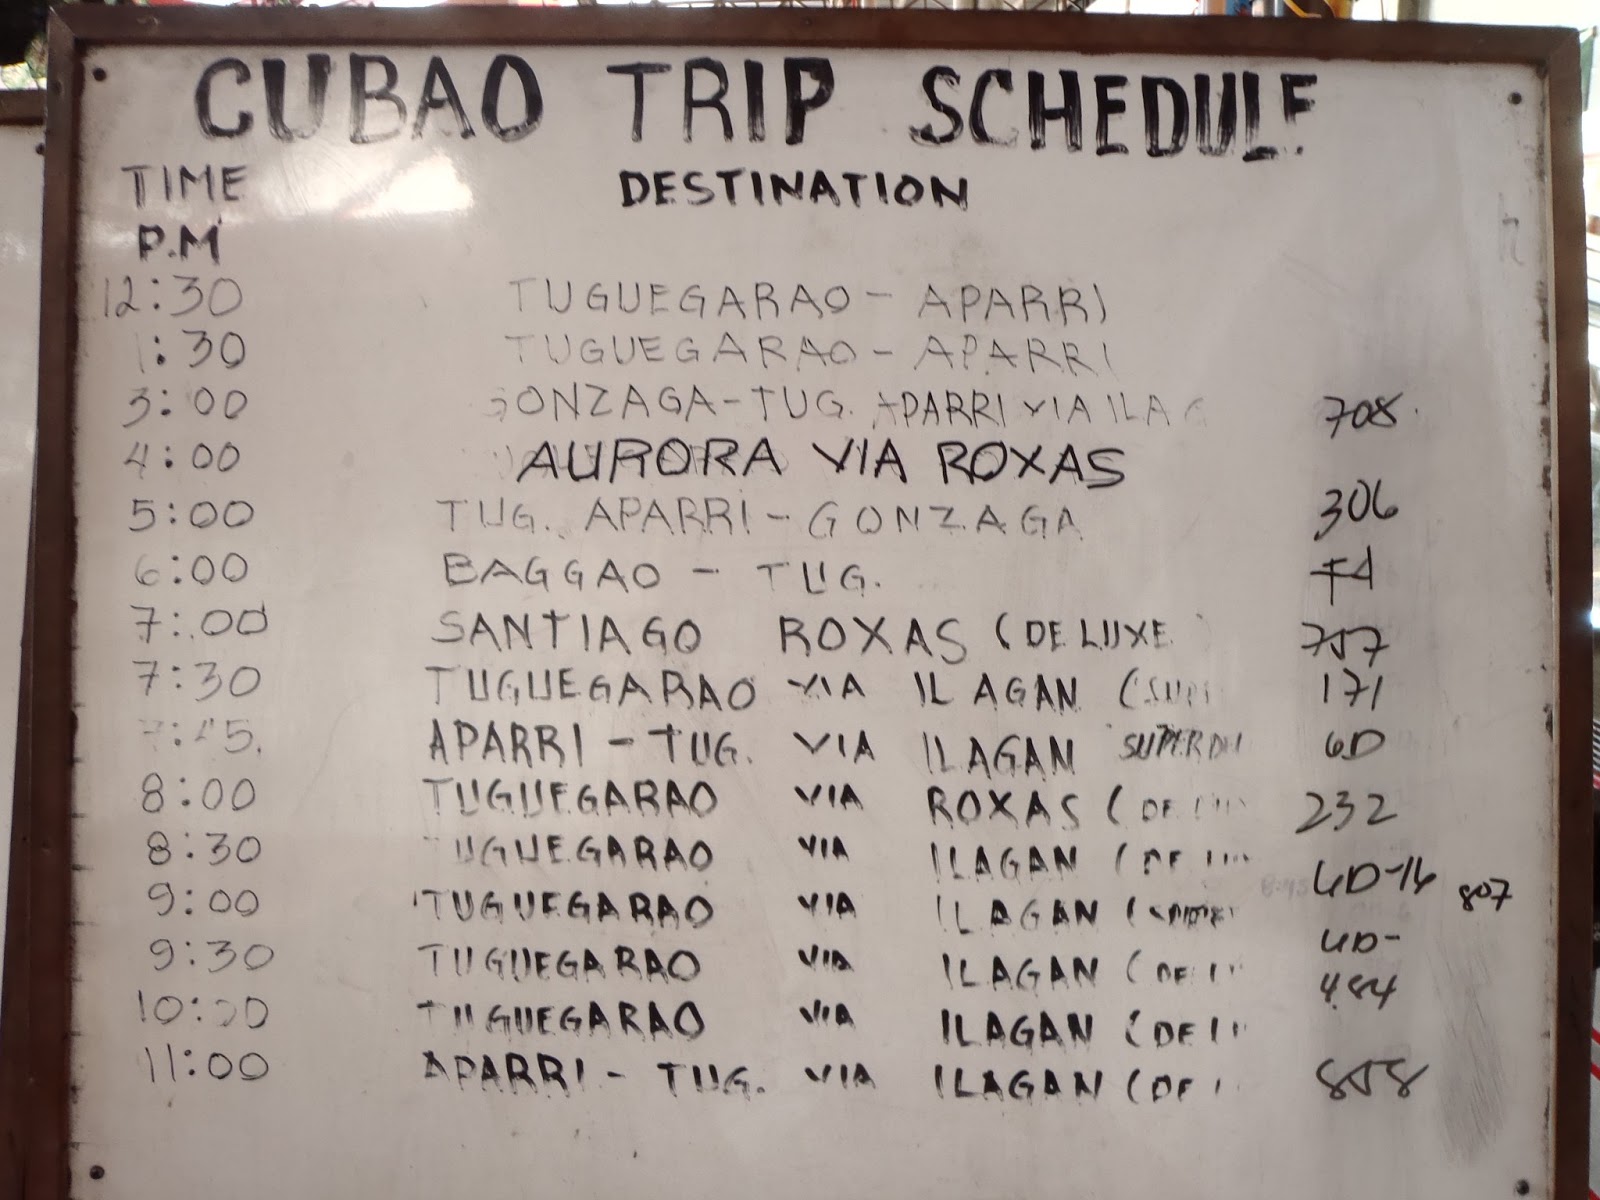 CUBAO TRIP SCHEDULE
TIME DESTINATION
P.M
12:30 TUGUEGARAO - APARRI
1:30 TUGUEGARAO - APARRI
3:00 GONZAGA - TUG. APARRI VIA ILAG 708
4:00 AURORA VIA ROXAS
5:00 TUG. APARRI - GONZAGA 306
6:00 BAGGAO - TUG.
7:00 SANTIAGO ROXAS (DELUXE 757
7:30 TUGUEGARAO VIA ILAGAN (SUP 171
7:45. APARRI - TUG. VIA ILAGAN 6D
8:00 TUGUEGARAO VIA ROXAS (DE 232
8:30 TUGUEGARAO VIA ILAGAN (DE
9:00 TUGUEGARAO VIA ILAGAN ( 807
9:30 TUGUEGARAO VIA ILAGAN (DE
10:00 TUGUEGARAO VIA ILAGAN (DE 484
11:00 APARRI - TUG. VIA ILAGAN (DE 858